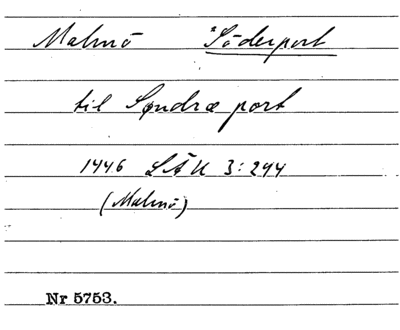 Malmö *Söderport
til Søndræ port
1446 LÄU 3:294
(Malmö)
Nr 5753.